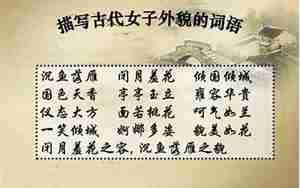 描写古代女子外貌的词语
沉鱼落雁 闭月羞花 倾国倾城
国色天香 亭亭玉立 雍容华贵
仪态大方 面若桃花 呵气如兰
一笑倾城 婀娜多姿 貌美如花
闭月羞花之容,沉鱼落雁之貌